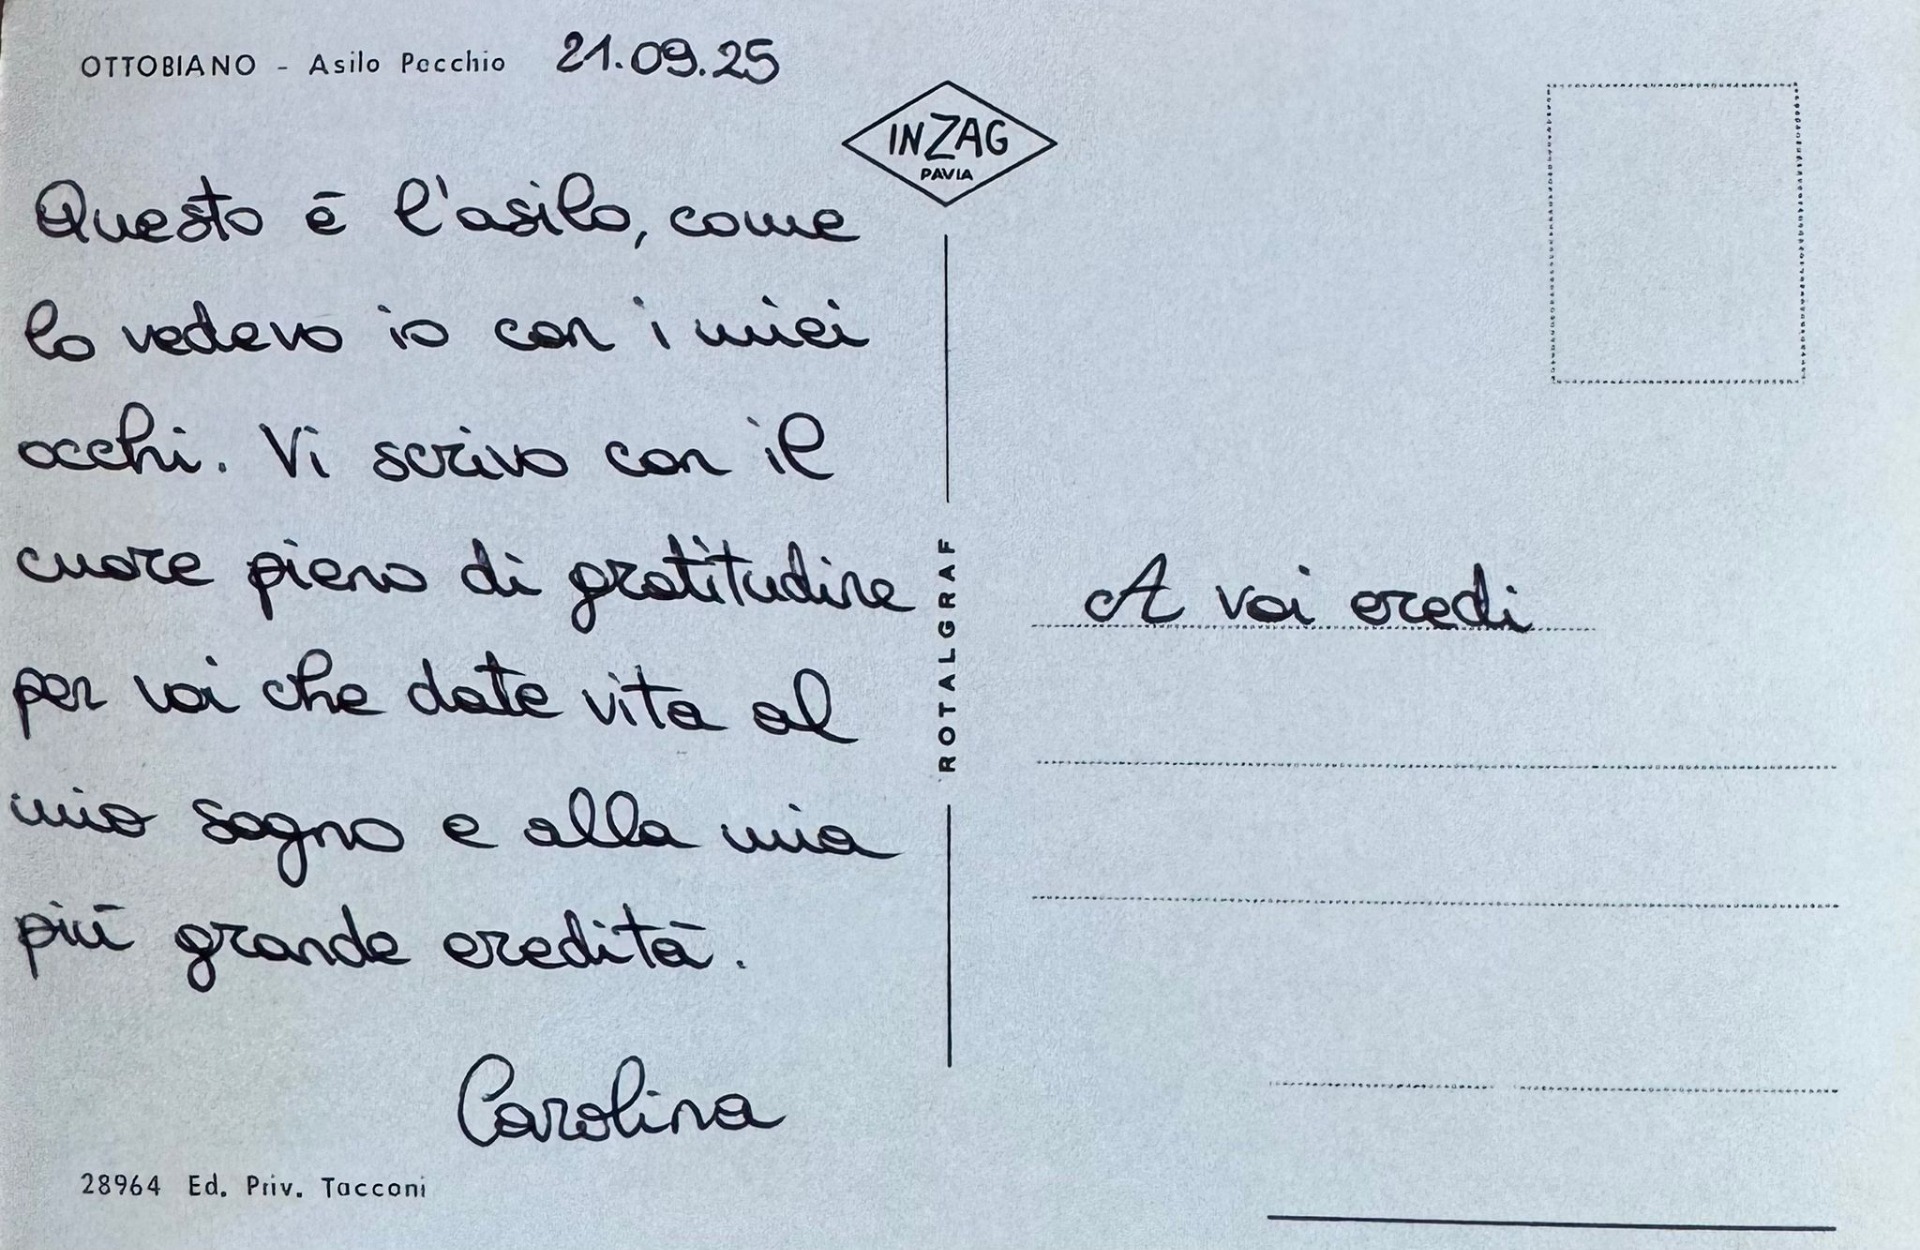 OTTOBIANO - Asilo Pecchio 21.09.25
Questo è l'asilo, come
lo vedevo io con i miei
occhi. Vi scrivo con il
cuore pieno di gratitudine
per voi che date vita al
mio sogno e alla mia
più grande eredità.
Carolina
28964 Ed. Priv. Tacconi
INZAG
PAVIA
ROTALGRAF
A voi eredi